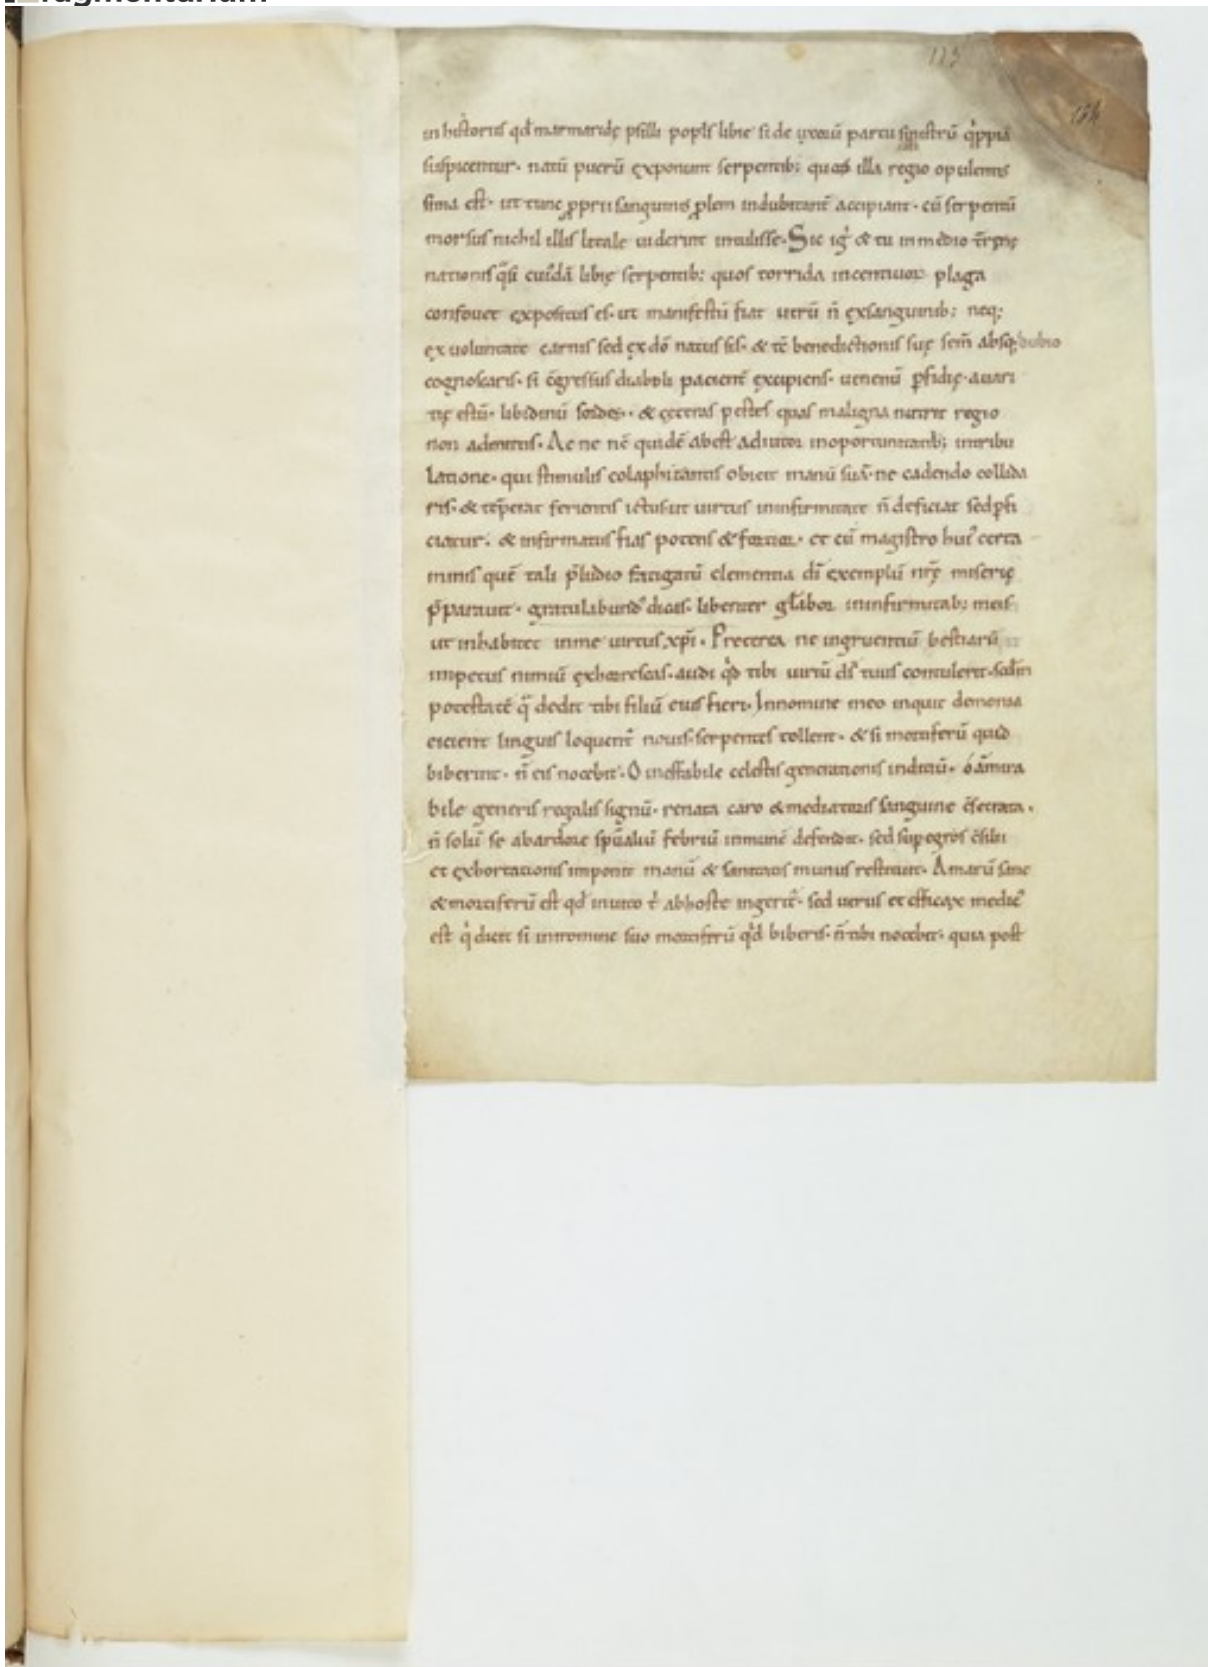 ragmentarium
123
154
in historiis qd' marmaridę psilli popl'i libię si de uxoriū partu sinistrū q'ppiā
suspicentur· natū puerū exponunt serpentib; quos illa regio opulentis
sima est· ut tunc pprii sanguinis plem indubitant accipiant· cū serpentū
morsus nichil illis letale uiderint intulisse· Sic ig' & tu in medio
nationis q̄si cuiusdā libię serpentib; quos torrida incentiuor plaga
confouet expositus es· ut manifestū fiat utrū n̄ ex sanguinib; neq;
ex uoluntate carnis sed ex dō natus sis· & benedictionis suę sem̄ absq; dubio
cognoscaris· si c̄gressus diaboli pacient excipiens· uenenū pfidię· auari
tię estū· libidinū sordes· & ceteras pestes quas maligna nutrit regio
non admittis· Ac ne quidē abest adiutor in oportunitatib; in tribu
latione· qui stimulis colaphizantis obicit manū suā· ne cadendo collida
ris· & tēperat ferientis ictus· ut uirtus in infirmitate n̄ deficiat sed pfi
ciatur· & infirmatus fias potens & fortior· et cū magistro hui' certa
minis quē tali pludio fatigatū clementia di' exemplū nrę miserię
pparauit· gratulabund' dicas· libenter gl'abor in infirmitab; meis
ut inhabitet in me uirtus xpi· Preterea ne ingruentiū bestiarū
impetus nimiū exhorrescas· audi q'd tibi uirtū ds' tuus contulerit·
potestatē q̄ dedit tibi filiū eius fieri· In nomine meo inquit demonia
eicient linguis loquent' nouis· serpentes tollent· & si mortiferū quid
biberint· n̄ eis nocebit· O ineffabile celestis generationis inditiū· o āmira
bile generis regalis signū· renata caro & mediatoris sanguine c̄secrata·
n̄ solū se ab ardore spualiū febriū inmunē defendit· sed sup egros c̄silii
et exhortationis imponit manū & sanitatis munus restituit· Amarū sane
& mortiferū est qd' inuito t' ab hoste ingerit'· sed uerus et efficax medic'
est q' dicit si in nomine suo mortiferū q'd biberis· n̄ tibi nocebit· quia post